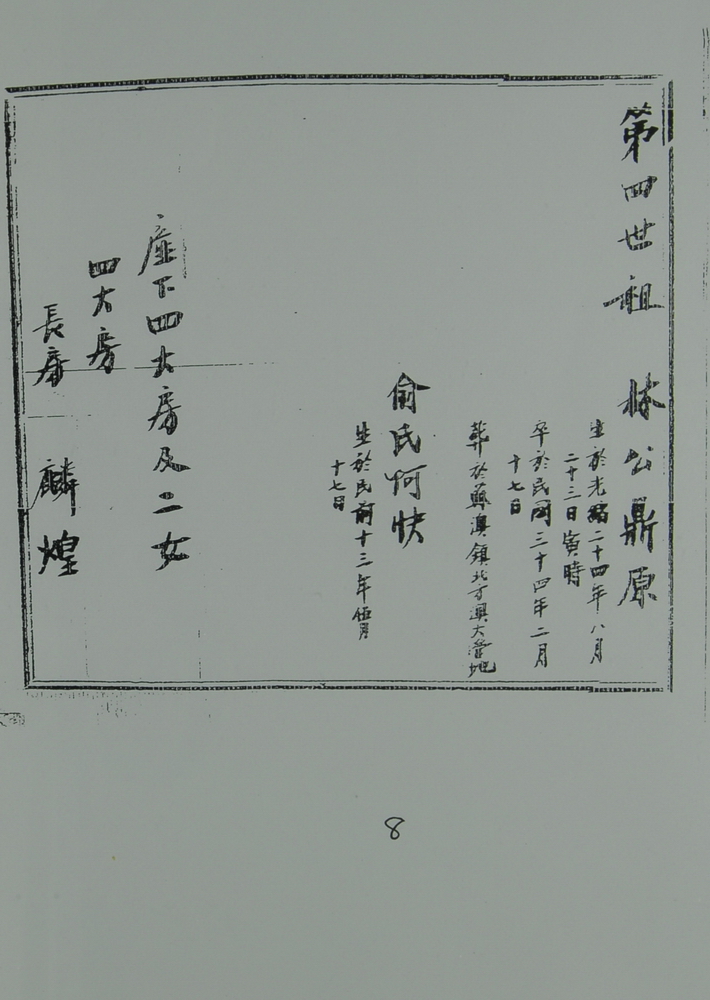 第四世祖 林公鼎原
生於光緒二十四年八月
二十三日寅時
卒於民國三十四年二月
十七日
葬於蘇澳鎮北方澳大營地
俞氏阿快
生於民前十三年伍月
十七日
下四大房及二女
四大房
長房 麟煌
8